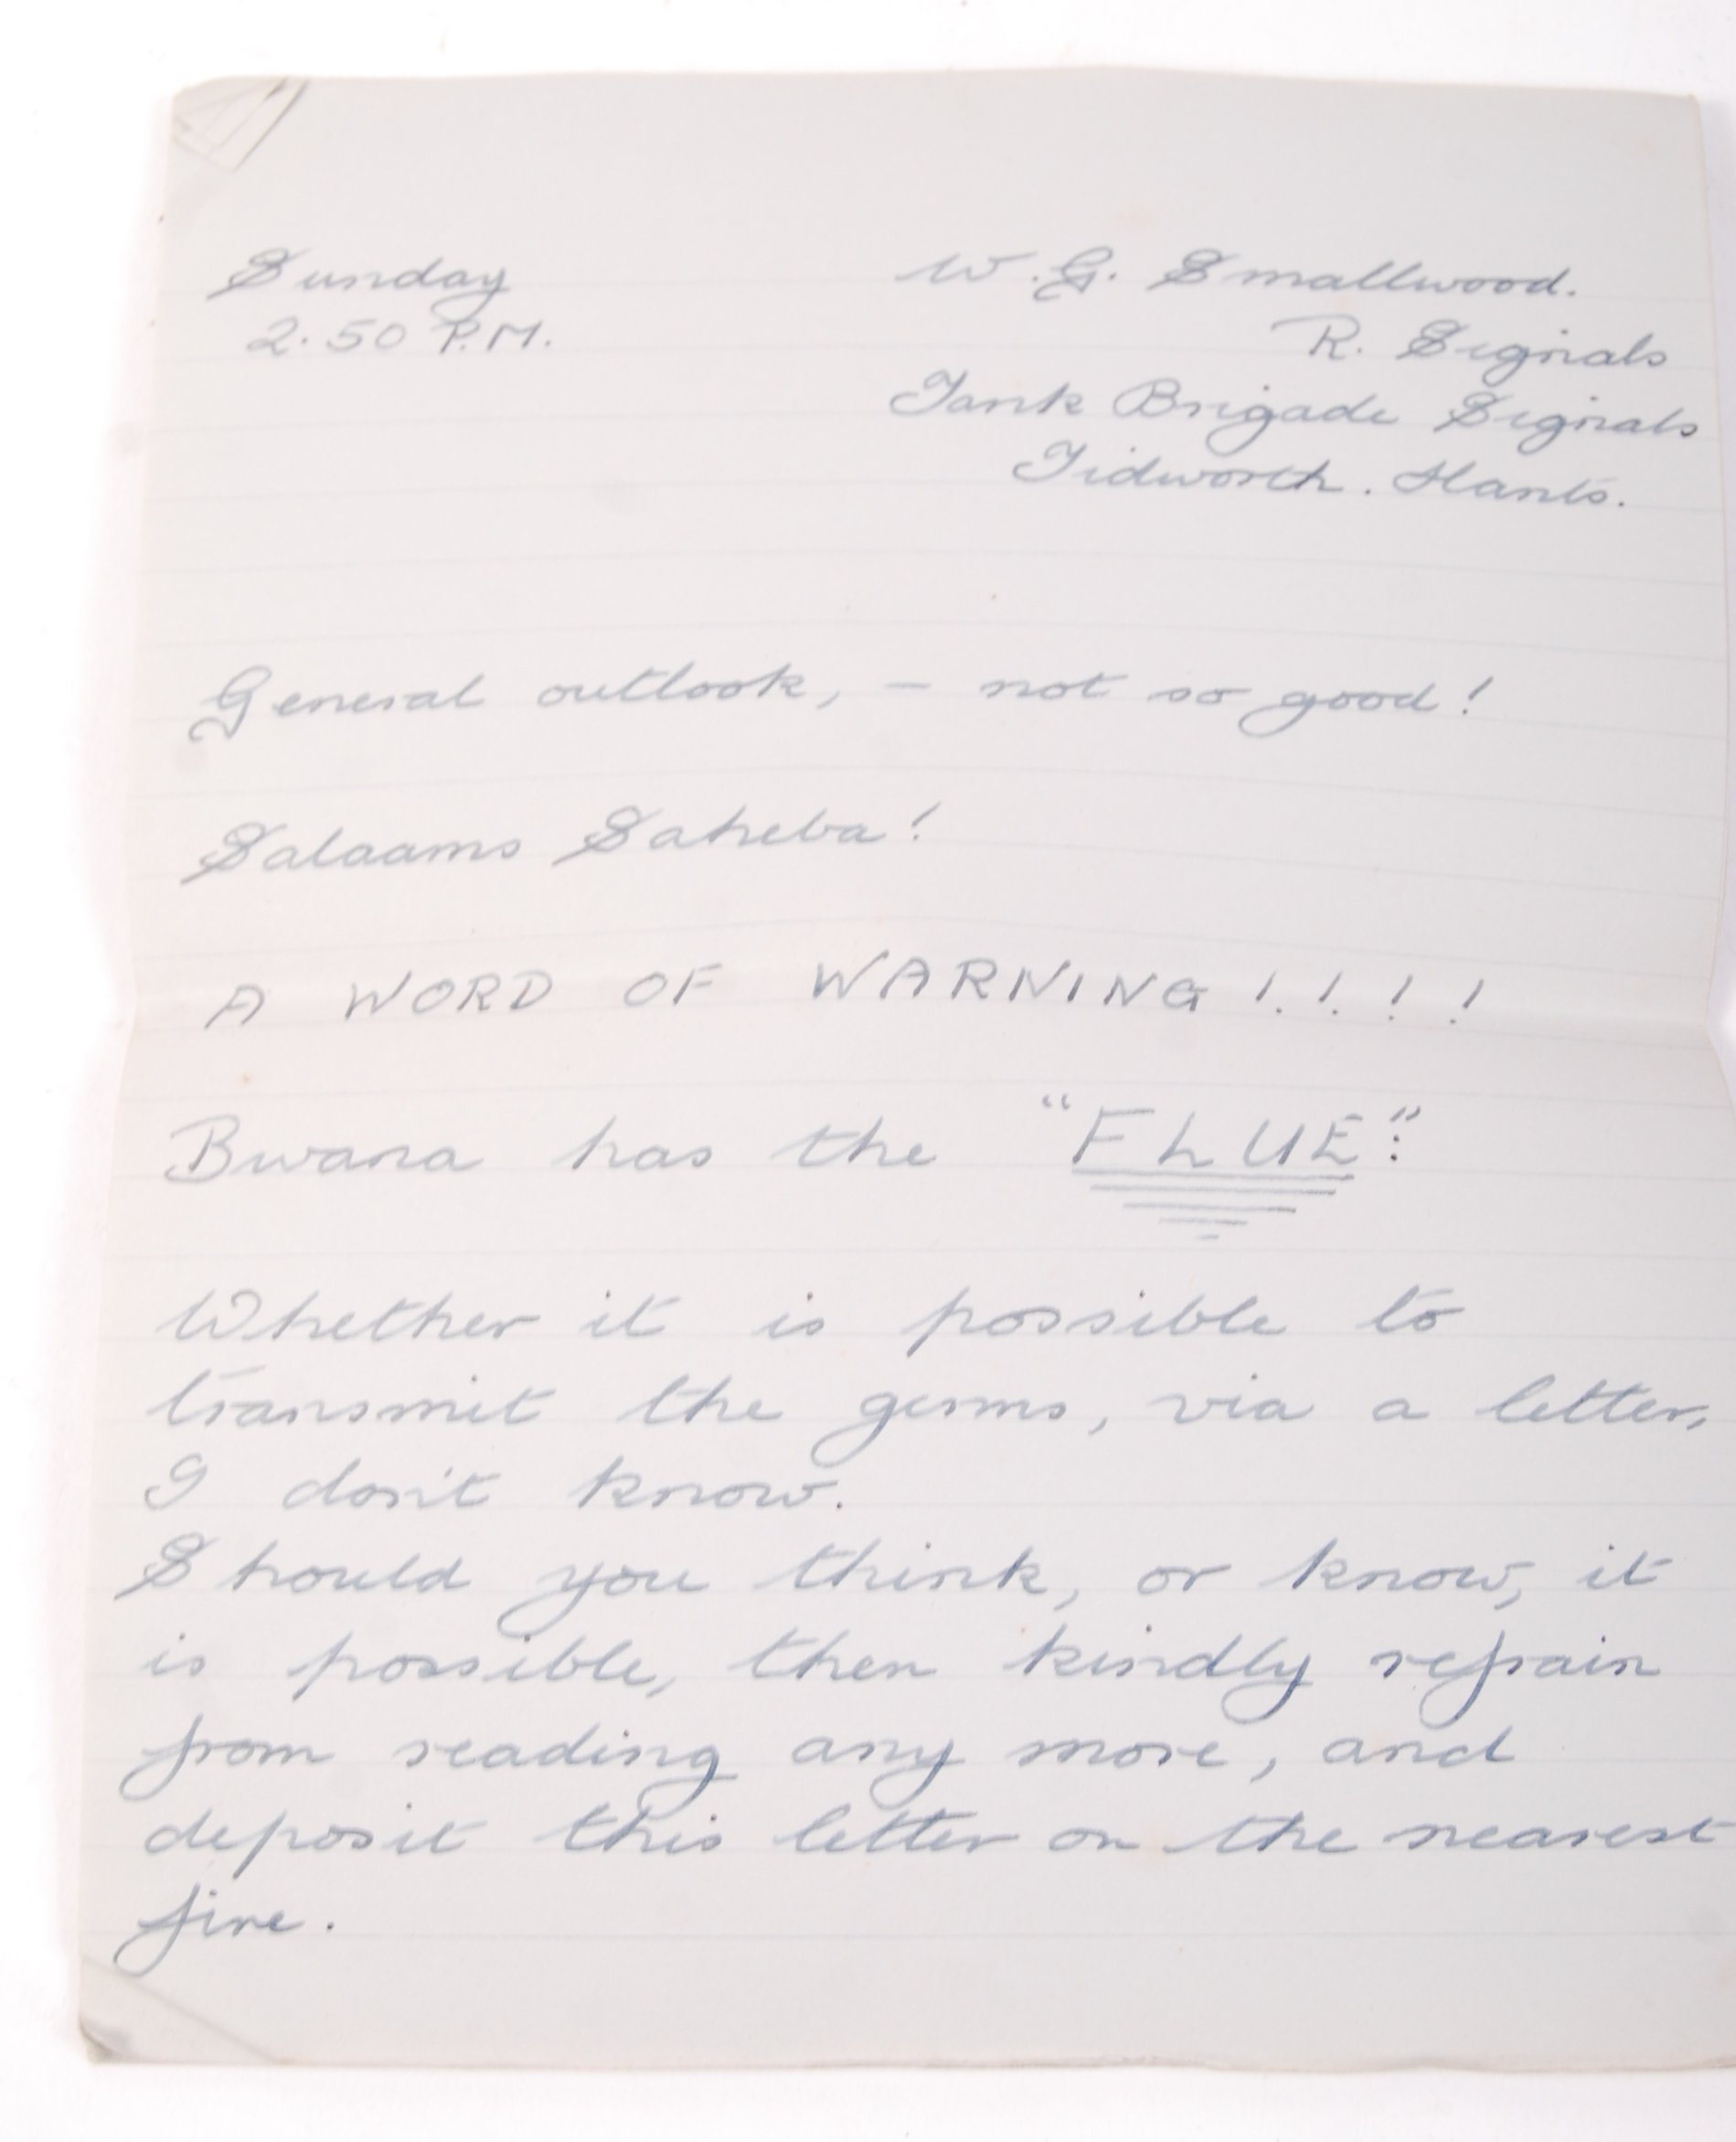 Sunday
2.50 P.M.
W.G. Smallwood.
R. Signals
Tank Brigade Signals
Tidworth. Hants.
General outlook, – not so good!
Salaams Saheba!
A WORD OF WARNING!!!!
Bwana has the "FLUE":
Whether it is possible to
transmit the germs, via a letter,
I don't know.
Should you think, or know, it
is possible, then kindly refrain
from reading any more, and
deposit this letter on the nearest
fire.